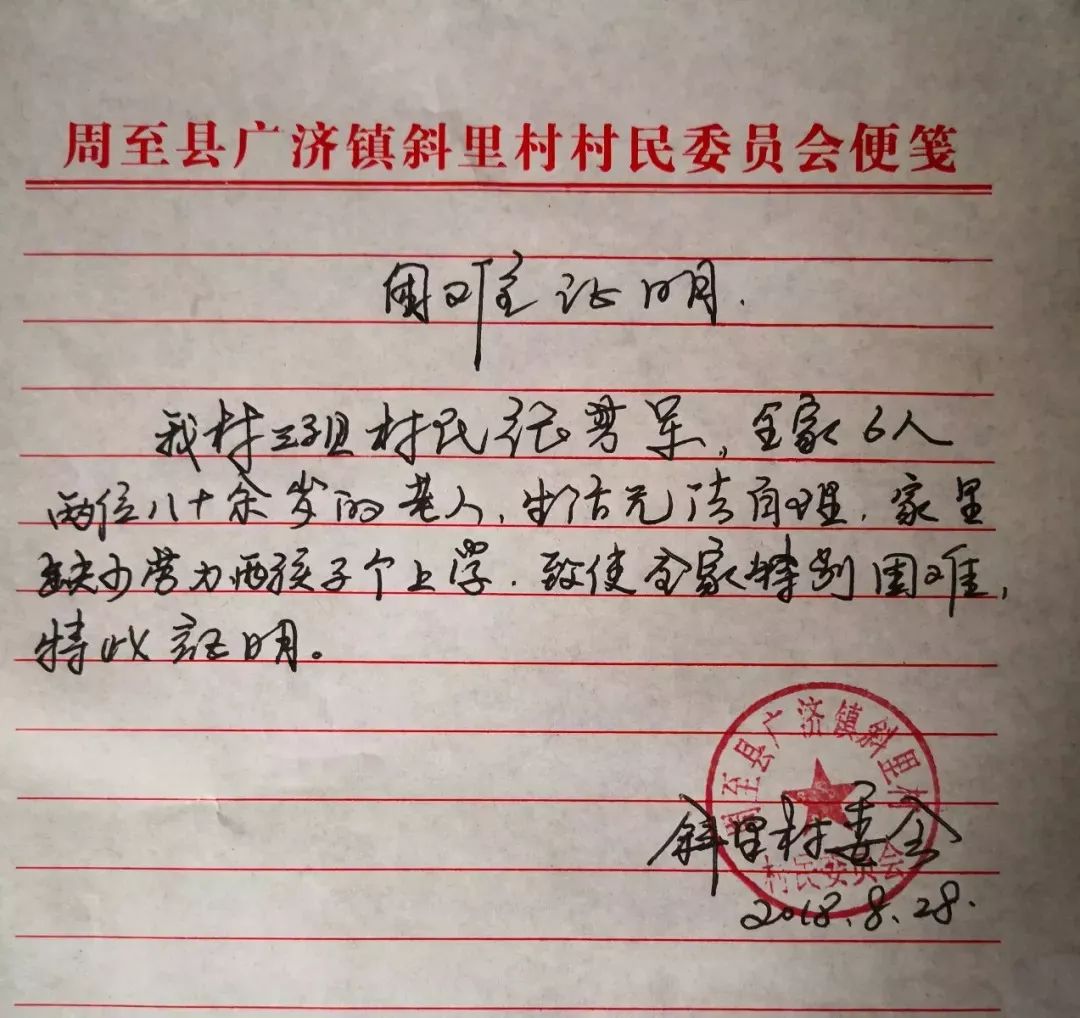 周至县广济镇斜里村村民委员会便笺
困难证明.
我村三组村民张军,全家6人
两位八十余岁的老人,生活无法自理,家里
缺少劳力两孩子个上学.致使全家特别困难,
特此证明。
周至县广济镇斜里村
村民委员会
斜里村委会
2018.8.28.